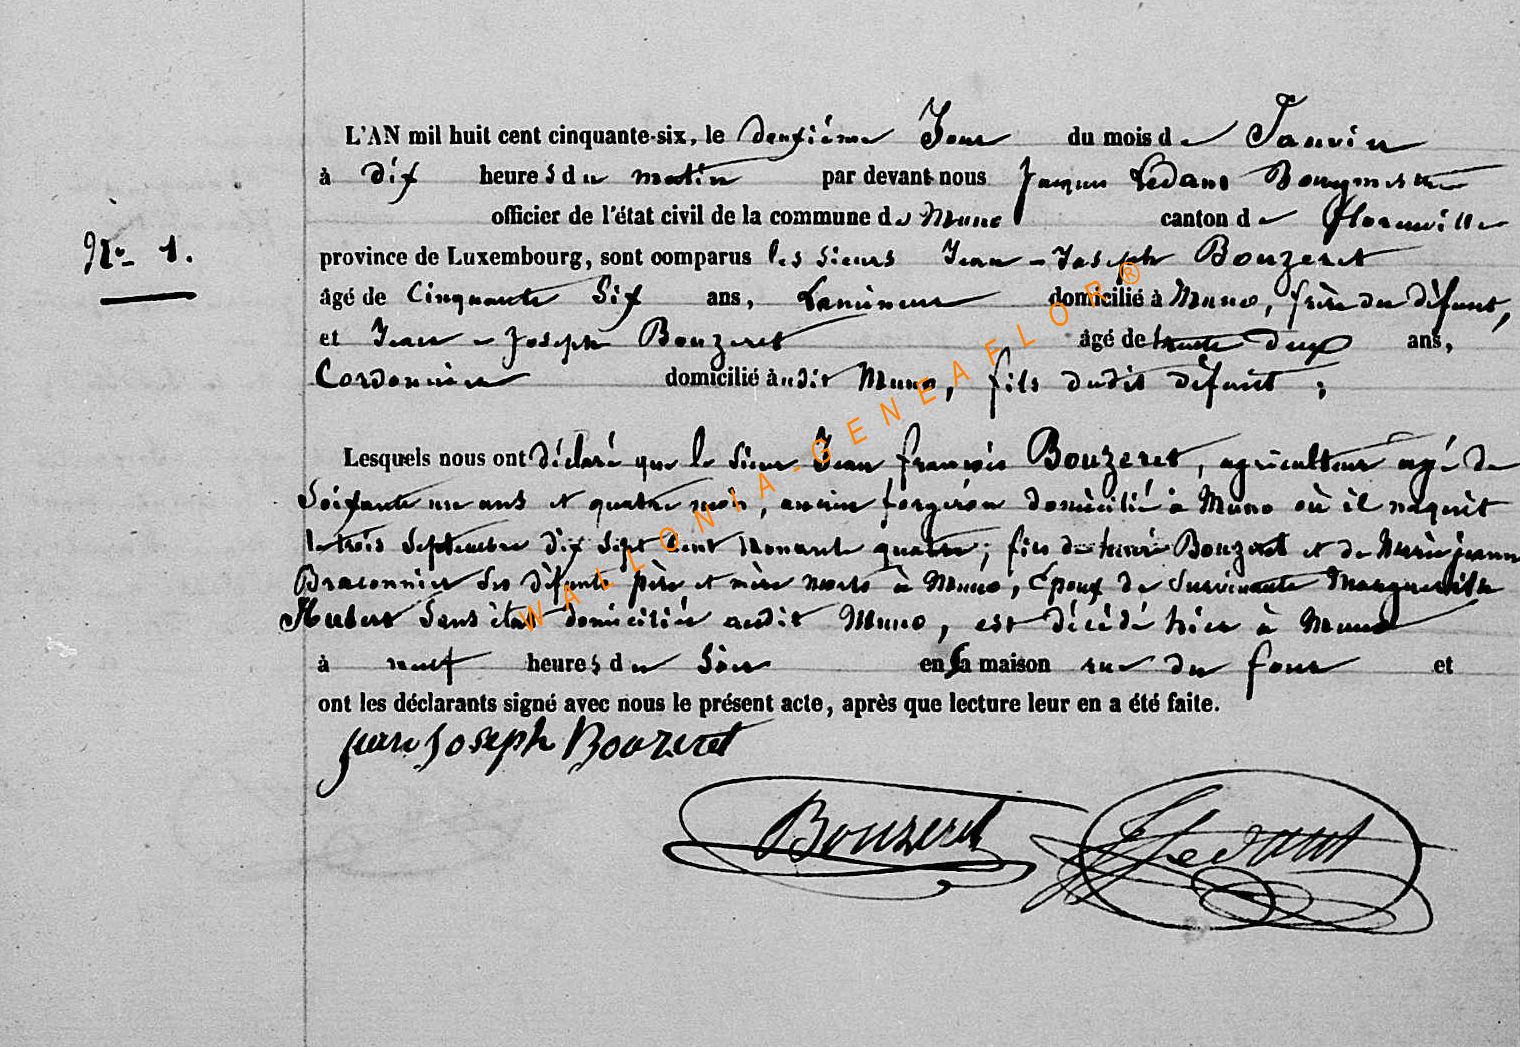 L'AN mil huit cent cinquante-six, le deuxième Jour du mois de Janvier
à dix heures du matin par devant nous Jacques Ledant Bourgmestre
officier de l'état civil de la commune de Muno canton de Florenville
N° 1.
province de Luxembourg, sont comparus les sieurs Jean-Joseph Bouzeret
âgé de Cinquante Six ans, Lamineur domicilié à Muno, frère du défunt,
et Jean-Joseph Bouzeret âgé de trente deux ans,
Cordonnier domicilié audit Muno, fils dudit défunt;
Lesquels nous ont déclaré que le sieur Jean françois Bouzeret, agriculteur agé de
Soixante un ans et quatre mois, ancien forgeron domicilié à Muno où il naquit
le trois Septembre dix Sept Cent Nonante quatre; fils de henri Bouzeret et de Marie jeanne
Braconnier Ses défunts père et mère morts à Muno, Epoux de Survivante Marguerite
Hubert Sans état domiciliée audit Muno, est décédé hier à Muno
à neuf heures du Soir en sa maison rue du four et
ont les déclarants signé avec nous le présent acte, après que lecture leur en a été faite.
jean joseph Bouzeret
Bouzeret
JLedant
WALLONIA-GENEAFLOR®